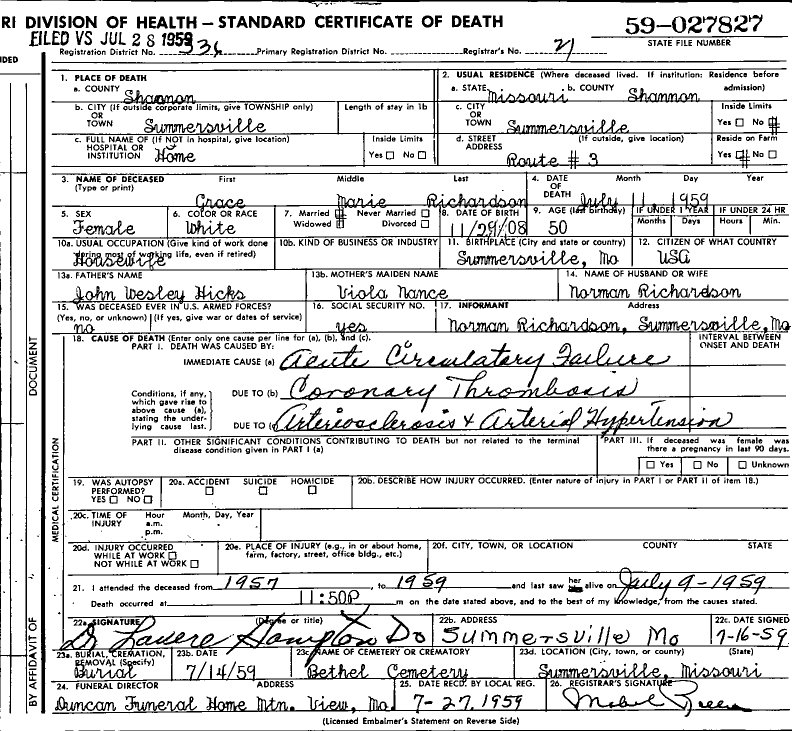 RI DIVISION OF HEALTH — STANDARD CERTIFICATE OF DEATH 59-027827
FILED VS JUL 28 1959 STATE FILE NUMBER
Registration District No. 336 Primary Registration District No. Registrar's No. 21
1. PLACE OF DEATH
a. COUNTY Shannon
2. USUAL RESIDENCE (Where deceased lived. If institution: Residence before admission)
a. STATE Missouri b. COUNTY Shannon
b. CITY (If outside corporate limits, give TOWNSHIP only) OR TOWN Summersville
Length of stay in 1b
c. CITY OR TOWN Summersville
Inside Limits Yes □ No
c. FULL NAME OF (If NOT in hospital, give location) HOSPITAL OR INSTITUTION Home
Inside Limits Yes □ No □
d. STREET ADDRESS (If outside, give location) Route # 3
Reside on Farm Yes No □
3. NAME OF DECEASED (Type or print) First Middle Last
Grace Marie Richardson
4. DATE OF DEATH Month Day Year
July 11 1959
5. SEX Female
6. COLOR OR RACE White
7. Married Never Married □ Widowed Divorced □
8. DATE OF BIRTH 11/29/08
9. AGE (last birthday) 50
IF UNDER 1 YEAR Months Days
IF UNDER 24 HR Hours Min.
10a. USUAL OCCUPATION (Give kind of work done during most of working life, even if retired) Housewife
10b. KIND OF BUSINESS OR INDUSTRY
11. BIRTHPLACE (City and state or country) Summersville, Mo
12. CITIZEN OF WHAT COUNTRY USA
13a. FATHER'S NAME John Wesley Hicks
13b. MOTHER'S MAIDEN NAME Viola Nance
14. NAME OF HUSBAND OR WIFE Norman Richardson
15. WAS DECEASED EVER IN U.S. ARMED FORCES? (Yes, no, or unknown) (If yes, give war or dates of service) no
16. SOCIAL SECURITY NO. yes
17. INFORMANT Address
Norman Richardson, Summersville, Mo
18. CAUSE OF DEATH (Enter only one cause per line for (a), (b), and (c).
INTERVAL BETWEEN ONSET AND DEATH
PART I. DEATH WAS CAUSED BY:
IMMEDIATE CAUSE (a) Acute Circulatory Failure
Conditions, if any, which gave rise to above cause (a), stating the underlying cause last.
DUE TO (b) Coronary Thrombosis
DUE TO (c) Arteriosclerosis & Arterial Hypertension
PART II. OTHER SIGNIFICANT CONDITIONS CONTRIBUTING TO DEATH but not related to the terminal disease condition given in PART I (a)
PART III. If deceased was female was there a pregnancy in last 90 days.
□ Yes □ No □ Unknown
19. WAS AUTOPSY PERFORMED? YES □ NO □
20a. ACCIDENT SUICIDE HOMICIDE
□ □ □
20b. DESCRIBE HOW INJURY OCCURRED. (Enter nature of injury in PART I or PART II of item 18.)
20c. TIME OF INJURY Hour a.m. p.m. Month, Day, Year
20d. INJURY OCCURRED WHILE AT WORK □ NOT WHILE AT WORK □
20e. PLACE OF INJURY (e.g., in or about home, farm, factory, street, office bldg., etc.)
20f. CITY, TOWN, OR LOCATION COUNTY STATE
21. I attended the deceased from 1957, to 1959 and last saw her alive on July 9-1959
Death occurred at 11:50P m on the date stated above, and to the best of my knowledge, from the causes stated.
22a. SIGNATURE (Degree or title) Hampton Do
22b. ADDRESS Summersville Mo
22c. DATE SIGNED 7-16-59
23a. BURIAL, CREMATION, REMOVAL (Specify) Burial
23b. DATE 7/14/59
23c. NAME OF CEMETERY OR CREMATORY Bethel Cemetery
23d. LOCATION (City, town, or county) (State) Summersville, Missouri
24. FUNERAL DIRECTOR ADDRESS
Duncan Funeral Home Mtn. View, Mo.
25. DATE RECD. BY LOCAL REG. 7-27-1959
26. REGISTRAR'S SIGNATURE Mabel
(Licensed Embalmer's Statement on Reverse Side)
DOCUMENT
MEDICAL CERTIFICATION
BY AFFIDAVIT OF